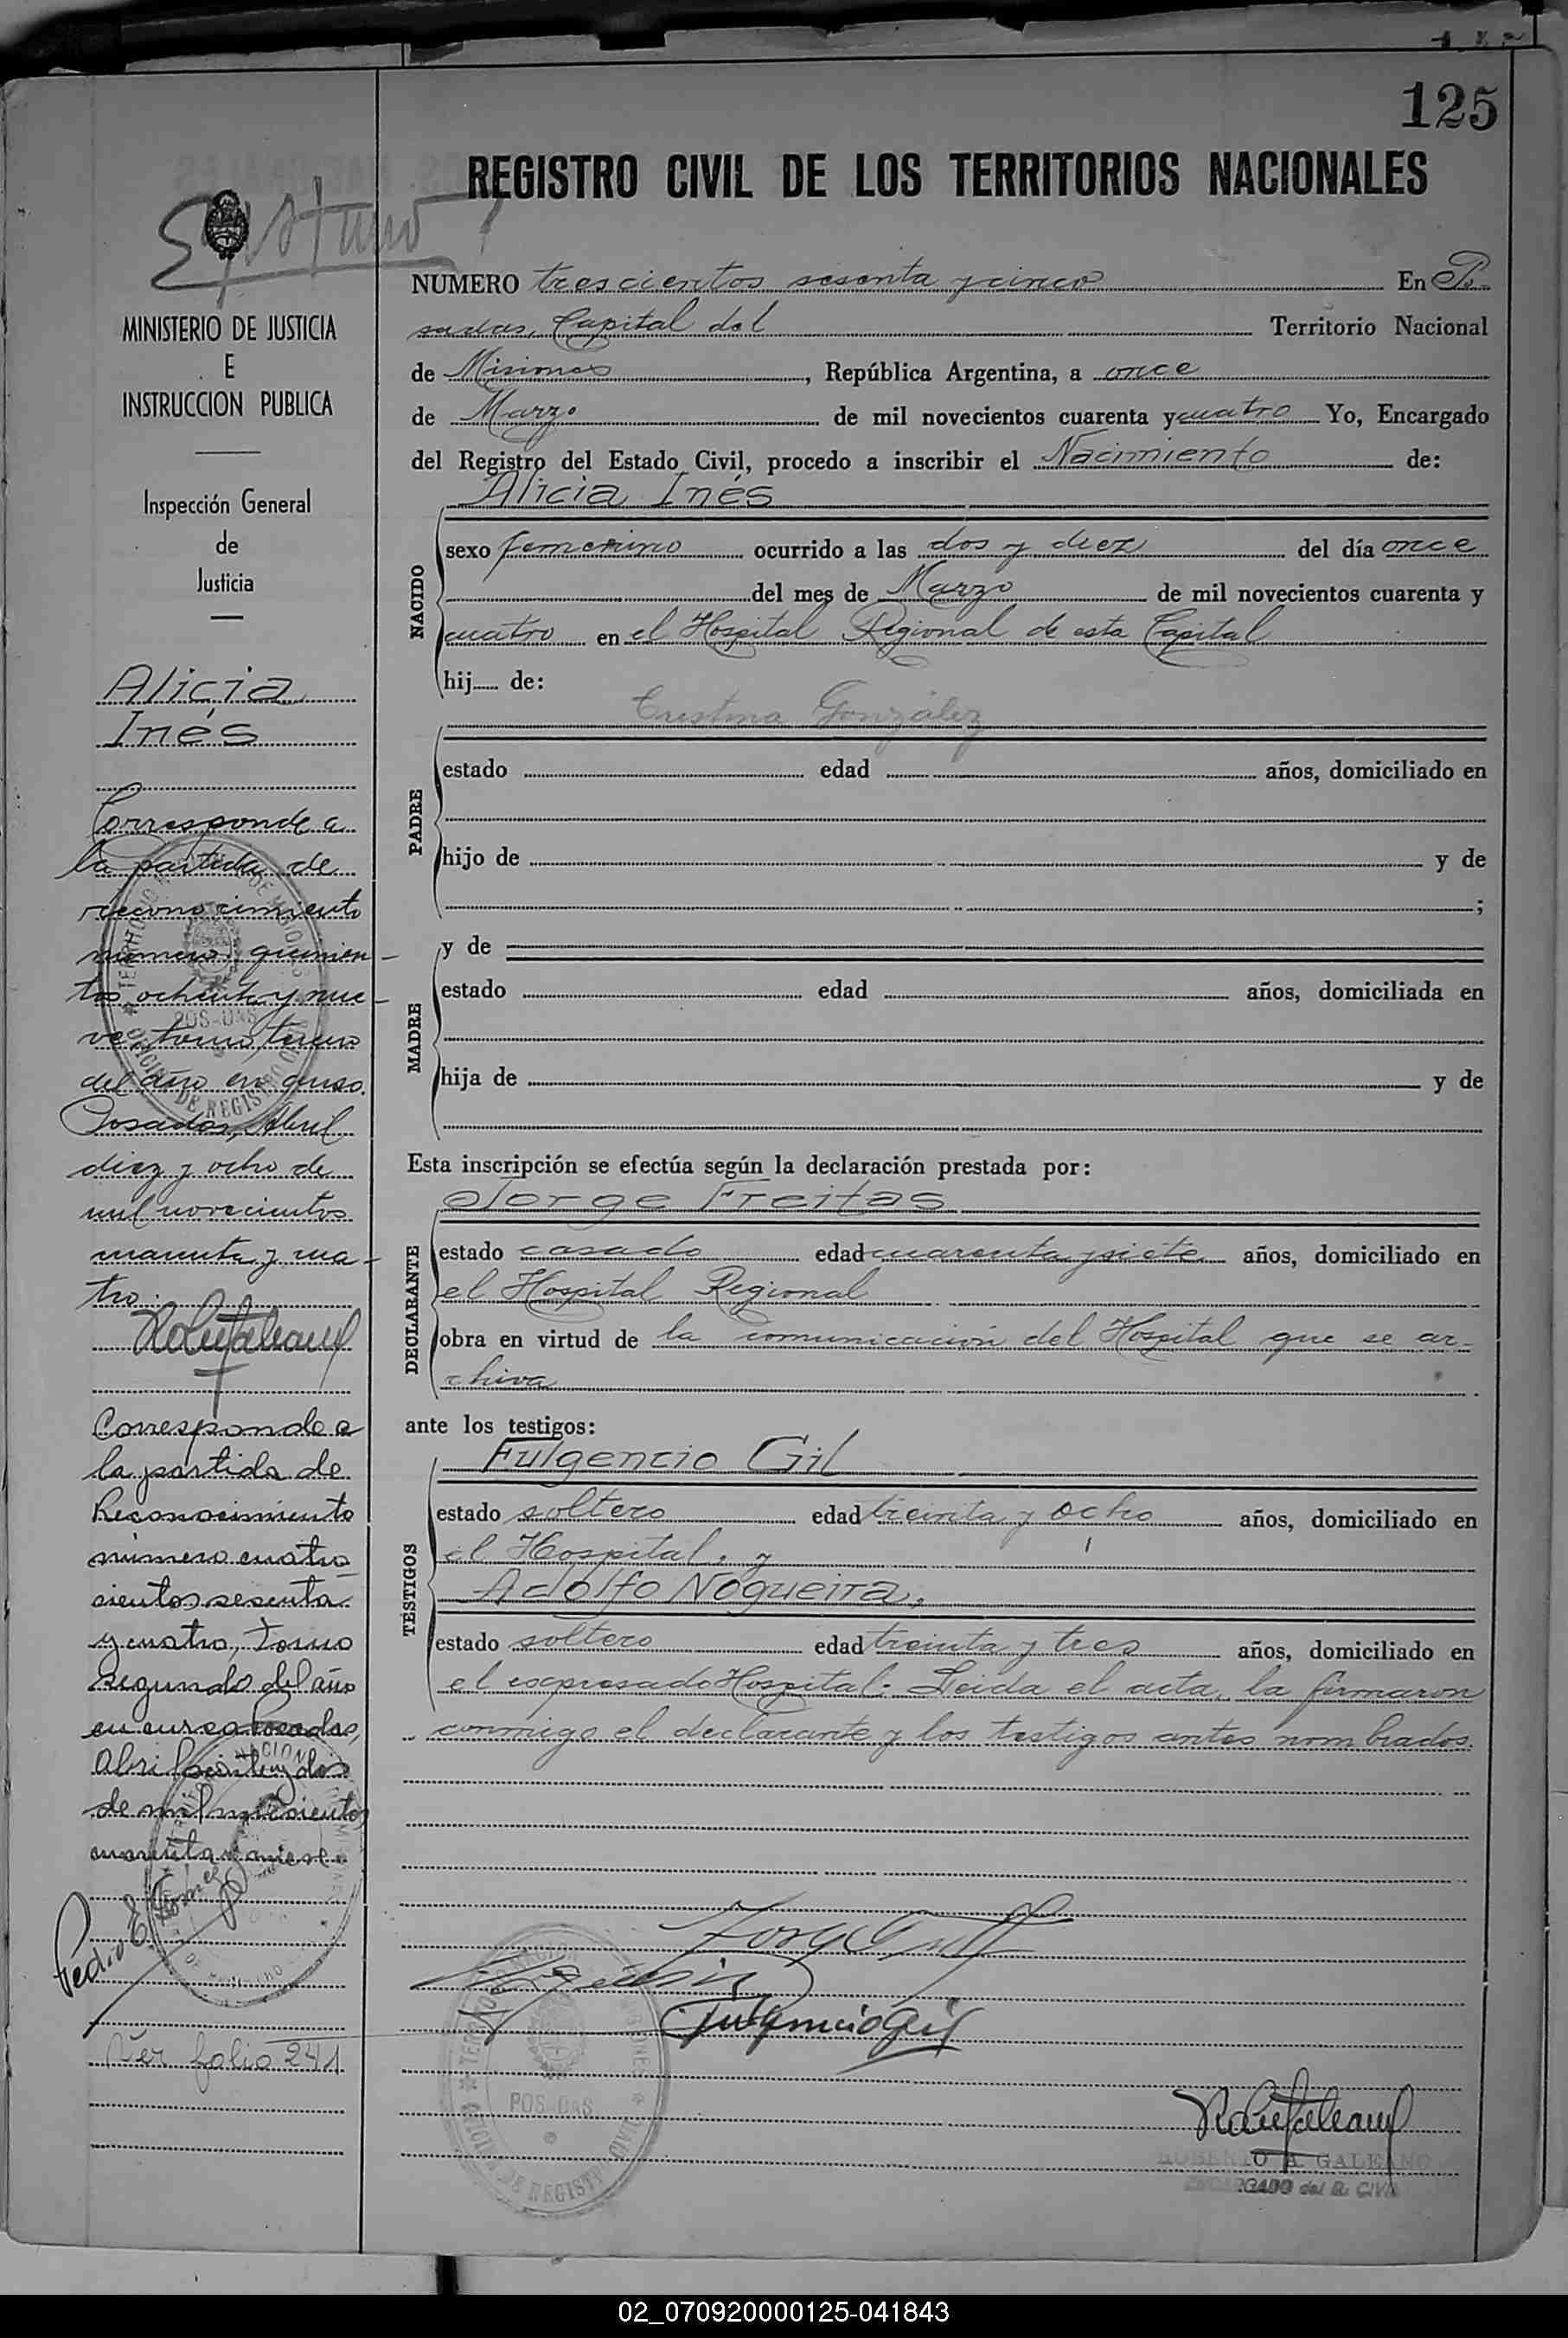 125
REGISTRO CIVIL DE LOS TERRITORIOS NACIONALES
MINISTERIO DE JUSTICIA
E
INSTRUCCION PUBLICA
Inspección General
de
Justicia
Alicia
Inés
Corresponde a
la partida de
reconocimiento
número quinien-
tos ochenta y nue-
ve, tomo tercero
del año en curso.
Posadas, Abril
diez y ocho de
mil novecientos
cuarenta y cua-
tro.
Corresponde a
la partida de
Reconocimiento
número cuatro
cientos sesenta
y cuatro, Tomo
segundo del año
en curso. Posadas,
Abril veintey dos
de mil novecientos
cuarenta y
Pedro E. Gómez
Ver folio 241
NUMERO trescientos sesenta y cinco En Po-
sadas, Capital del Territorio Nacional
de Misiones, República Argentina, a once
de Marzo de mil novecientos cuarenta y cuatro Yo, Encargado
del Registro del Estado Civil, procedo a inscribir el Nacimiento de:
Alicia Inés
NACIDO
sexo femenino ocurrido a las dos y diez del día once
del mes de Marzo de mil novecientos cuarenta y
cuatro en el Hospital Regional de esta Capital
hij de:
Cristina González
PADRE
estado edad años, domiciliado en
hijo de y de
;
MADRE
y de
estado edad años, domiciliada en
hija de y de
Esta inscripción se efectúa según la declaración prestada por:
Jorge Freitas
DECLARANTE
estado casado edad cuarenta y siete años, domiciliado en
el Hospital Regional
obra en virtud de la comunicación del Hospital que se ar-
chiva
ante los testigos:
Fulgencio Gil
TESTIGOS
estado soltero edad treinta y ocho años, domiciliado en
el Hospital, y
Adolfo Nogueira,
estado soltero edad treinta y tres años, domiciliado en
el expresado Hospital. Leida el acta, la firmaron
conmigo el declarante y los testigos antes nombrados.
Fulgencio Gil
POSADAS
ROBERTO A. GALEANO
ENCARGADO del R. CIVIL
02_070920000125-041843